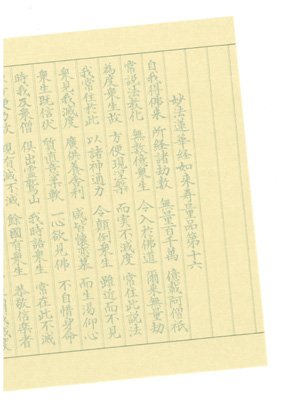 妙法蓮華経如来寿量品第十六
自我得佛来 所経諸劫数 無量百千萬 億載阿僧祇
常説法教化 無数億衆生 令入於佛道 爾来無量劫
為度衆生故 方便現涅槃 而実不滅度 常住此説法
我常住於此 以諸神通力 令顛倒衆生 雖近而不見
衆見我滅度 廣供養舎利 咸皆懐恋慕 而生渇仰心
衆生既信伏 質直意柔軟 一心欲見佛 不自惜身命
時我及衆僧 倶出霊鷲山 我時語衆生 常在此不滅
以方便力故 現有滅不滅 餘國有衆生 恭敬信楽者